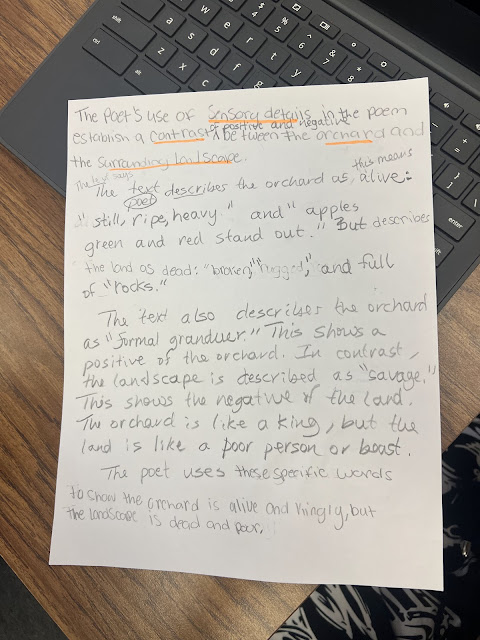 The Poet's use of Sensory details in the poem
of positive and negative
establish a contrast ^ between the orchard and
the surrounding landscape.
The text says
this means
The text describes the orchard as, alive:
poet
"still, ripe, heavy." and "apples
green and red stand out." But describes
the land as dead: "broken," "rugged," and full
of "rocks."
The text also describes the orchard
as "formal granduer." This shows a
positive of the orchard. In contrast,
the landscape is described as "savage."
This shows the negative of the land.
The orchard is like a king, but the
land is like a poor person or beast.
The poet uses these specific words
to show the orchard is alive and kingly, but
the landscape is dead and poor.